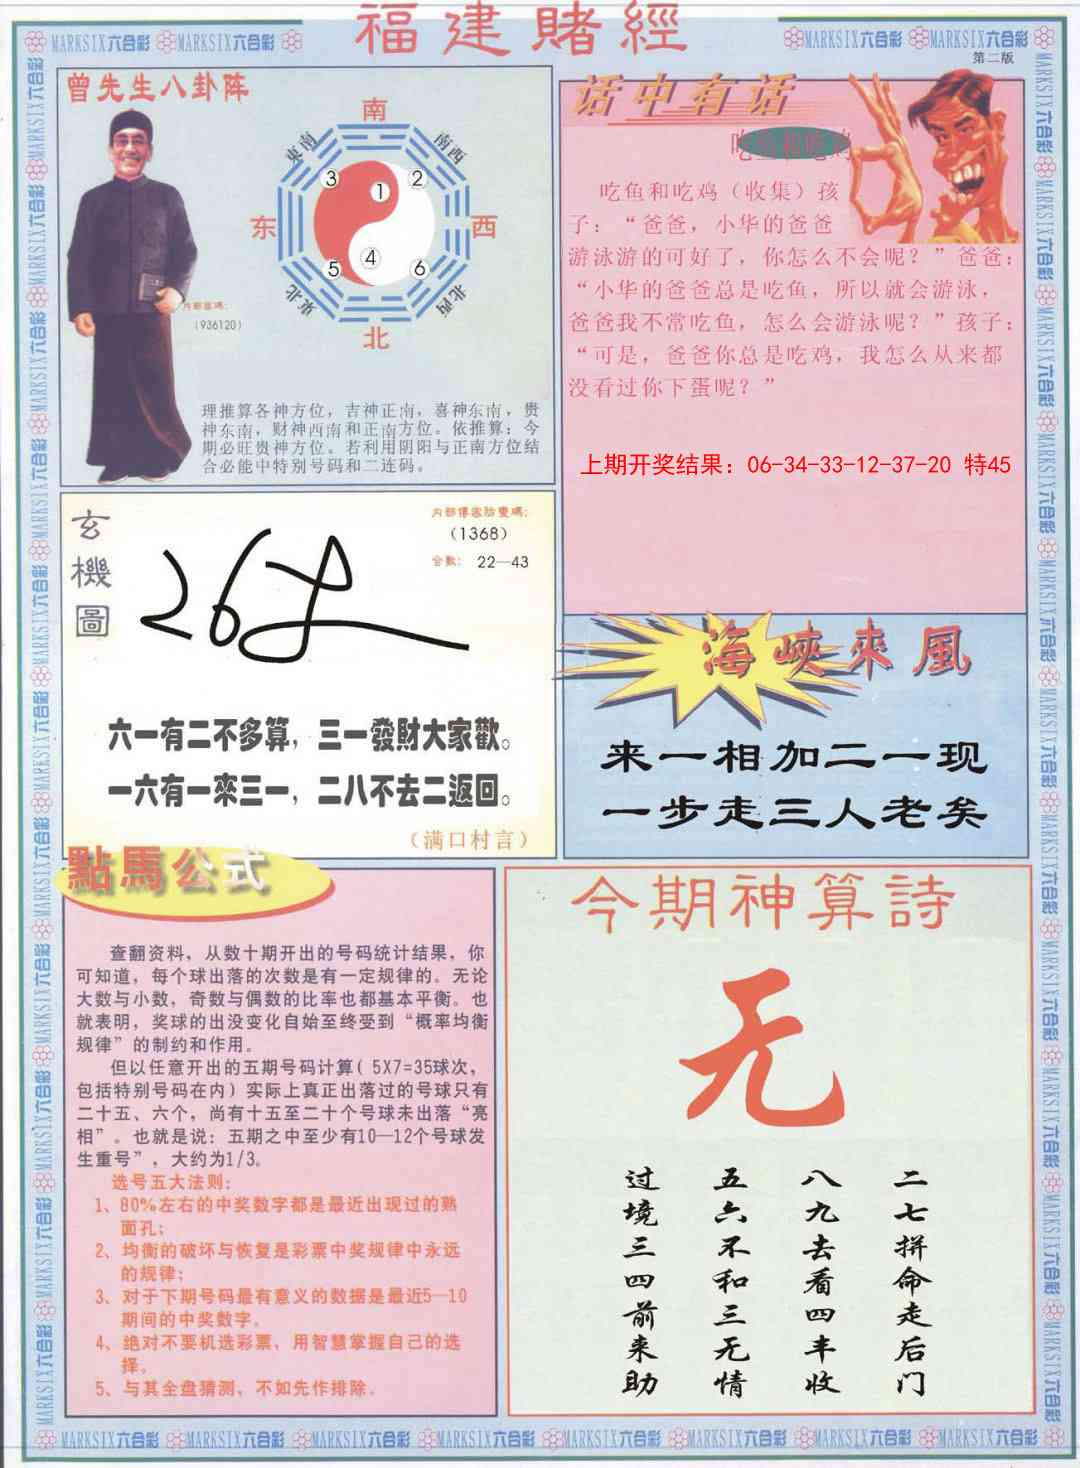 福建賭經
第二版
MARKSIX六合彩 MARKSIX六合彩
MARKSIX六合彩 MARKSIX六合彩
曾先生八卦阵
南
東南
南西
3
1
2
东
西
4
5
6
東北
北西
北
(936120)
理推算各神方位，吉神正南，喜神东南，贵
神东南，财神西南和正南方位。依推算：今
期必旺贵神方位。若利用阴阳与正南方位结
合必能中特别号码和二连码。
话中有话
吃鱼和吃鸡
吃鱼和吃鸡（收集）孩
子：“爸爸，小华的爸爸
游泳游的可好了，你怎么不会呢？”爸爸：
“小华的爸爸总是吃鱼，所以就会游泳，
爸爸我不常吃鱼，怎么会游泳呢？”孩子：
“可是，爸爸你总是吃鸡，我怎么从来都
没看过你下蛋呢？”
上期开奖结果：06-34-33-12-37-20 特45
玄機圖
(1368)
合數： 22—43
六一有二不多算，三一發財大家歡。
一六有一來三一，二八不去二返回。
（满口村言）
海峽來風
来一相加二一现
一步走三人老矣
點馬公式
查翻资料，从数十期开出的号码统计结果，你
可知道，每个球出落的次数是有一定规律的。无论
大数与小数，奇数与偶数的比率也都基本平衡。也
就表明，奖球的出没变化自始至终受到“概率均衡
规律”的制约和作用。
但以任意开出的五期号码计算( 5X7=35球次，
包括特别号码在内）实际上真正出落过的号球只有
二十五、六个，尚有十五至二十个号球未出落“亮
相”。也就是说：五期之中至少有10—12个号球发
生重号”，大约为1/3。
选号五大法则：
1、80%左右的中奖数字都是最近出现过的熟
面孔；
2、均衡的破坏与恢复是彩票中奖规律中永远
的规律；
3、对于下期号码最有意义的数据是最近5—10
期间的中奖数字。
4、绝对不要机选彩票，用智慧掌握自己的选
择。
5、与其全盘猜测，不如先作排除。
今期神算詩
无
二七拼命走后门
八九去看四丰收
五六不和三无情
过境三四前来助
MARKSIX六合彩 MARKSIX六合彩 MARKSIX六合彩 MARKSIX六合彩 MARKSIX六合彩 MARKSIX六合彩 MARKSIX六合彩 MARKSIX六合彩